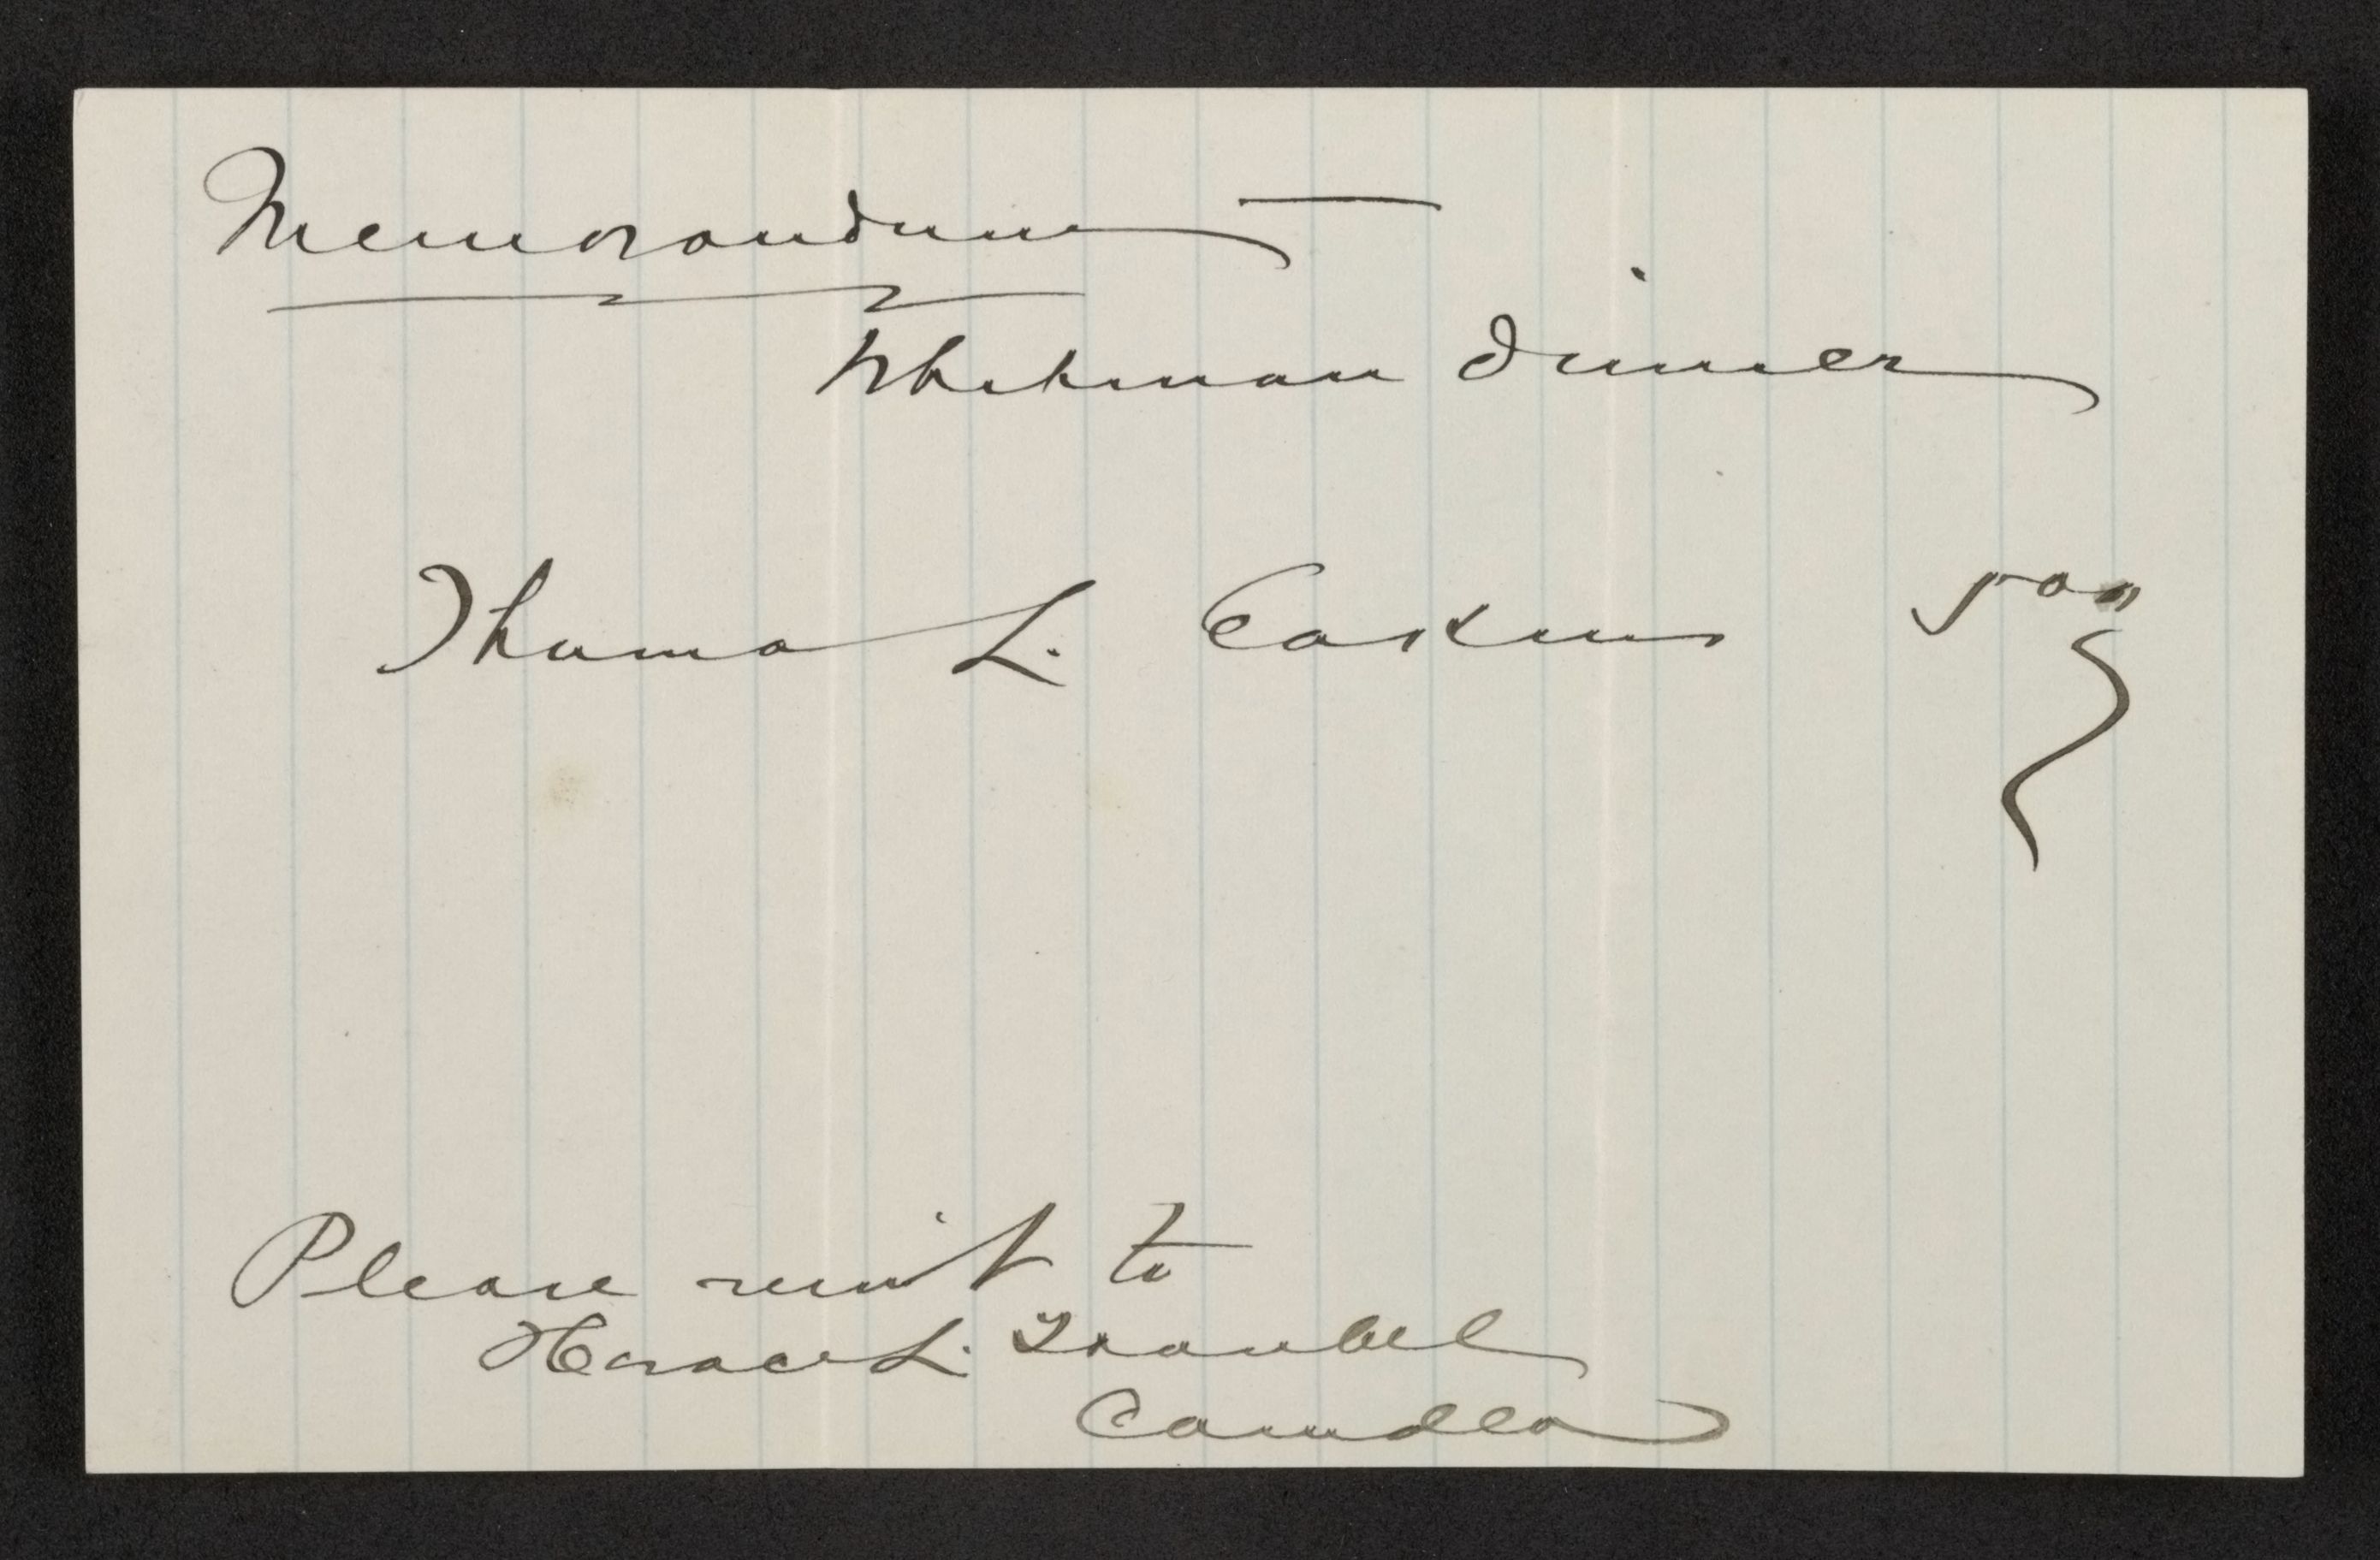 Memorandum
Whitman dinner
Thomas L. Eakins 500
Please remit to
Horace L. Traubel
Camden